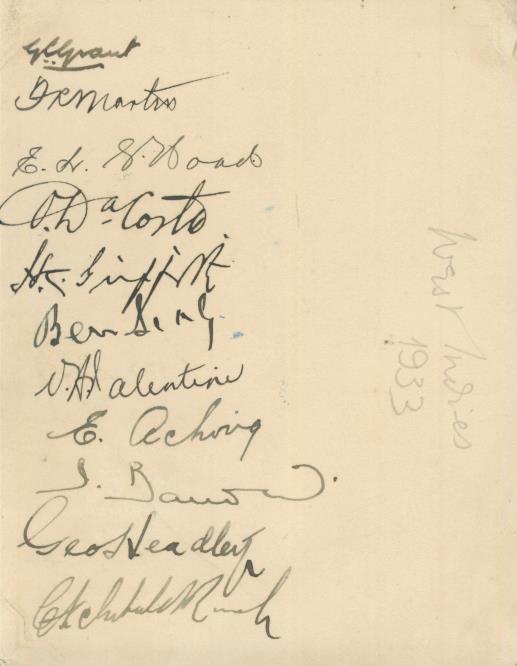 G.C. Grant
F R Martin
E. L. G. Hoad
O. Da Costa.
H.C. Griffith
Ben Sealy
V. A. Valentine
E. Achong
I. Barrow.
Geo Headley
C. Archibald
West Indies
1933